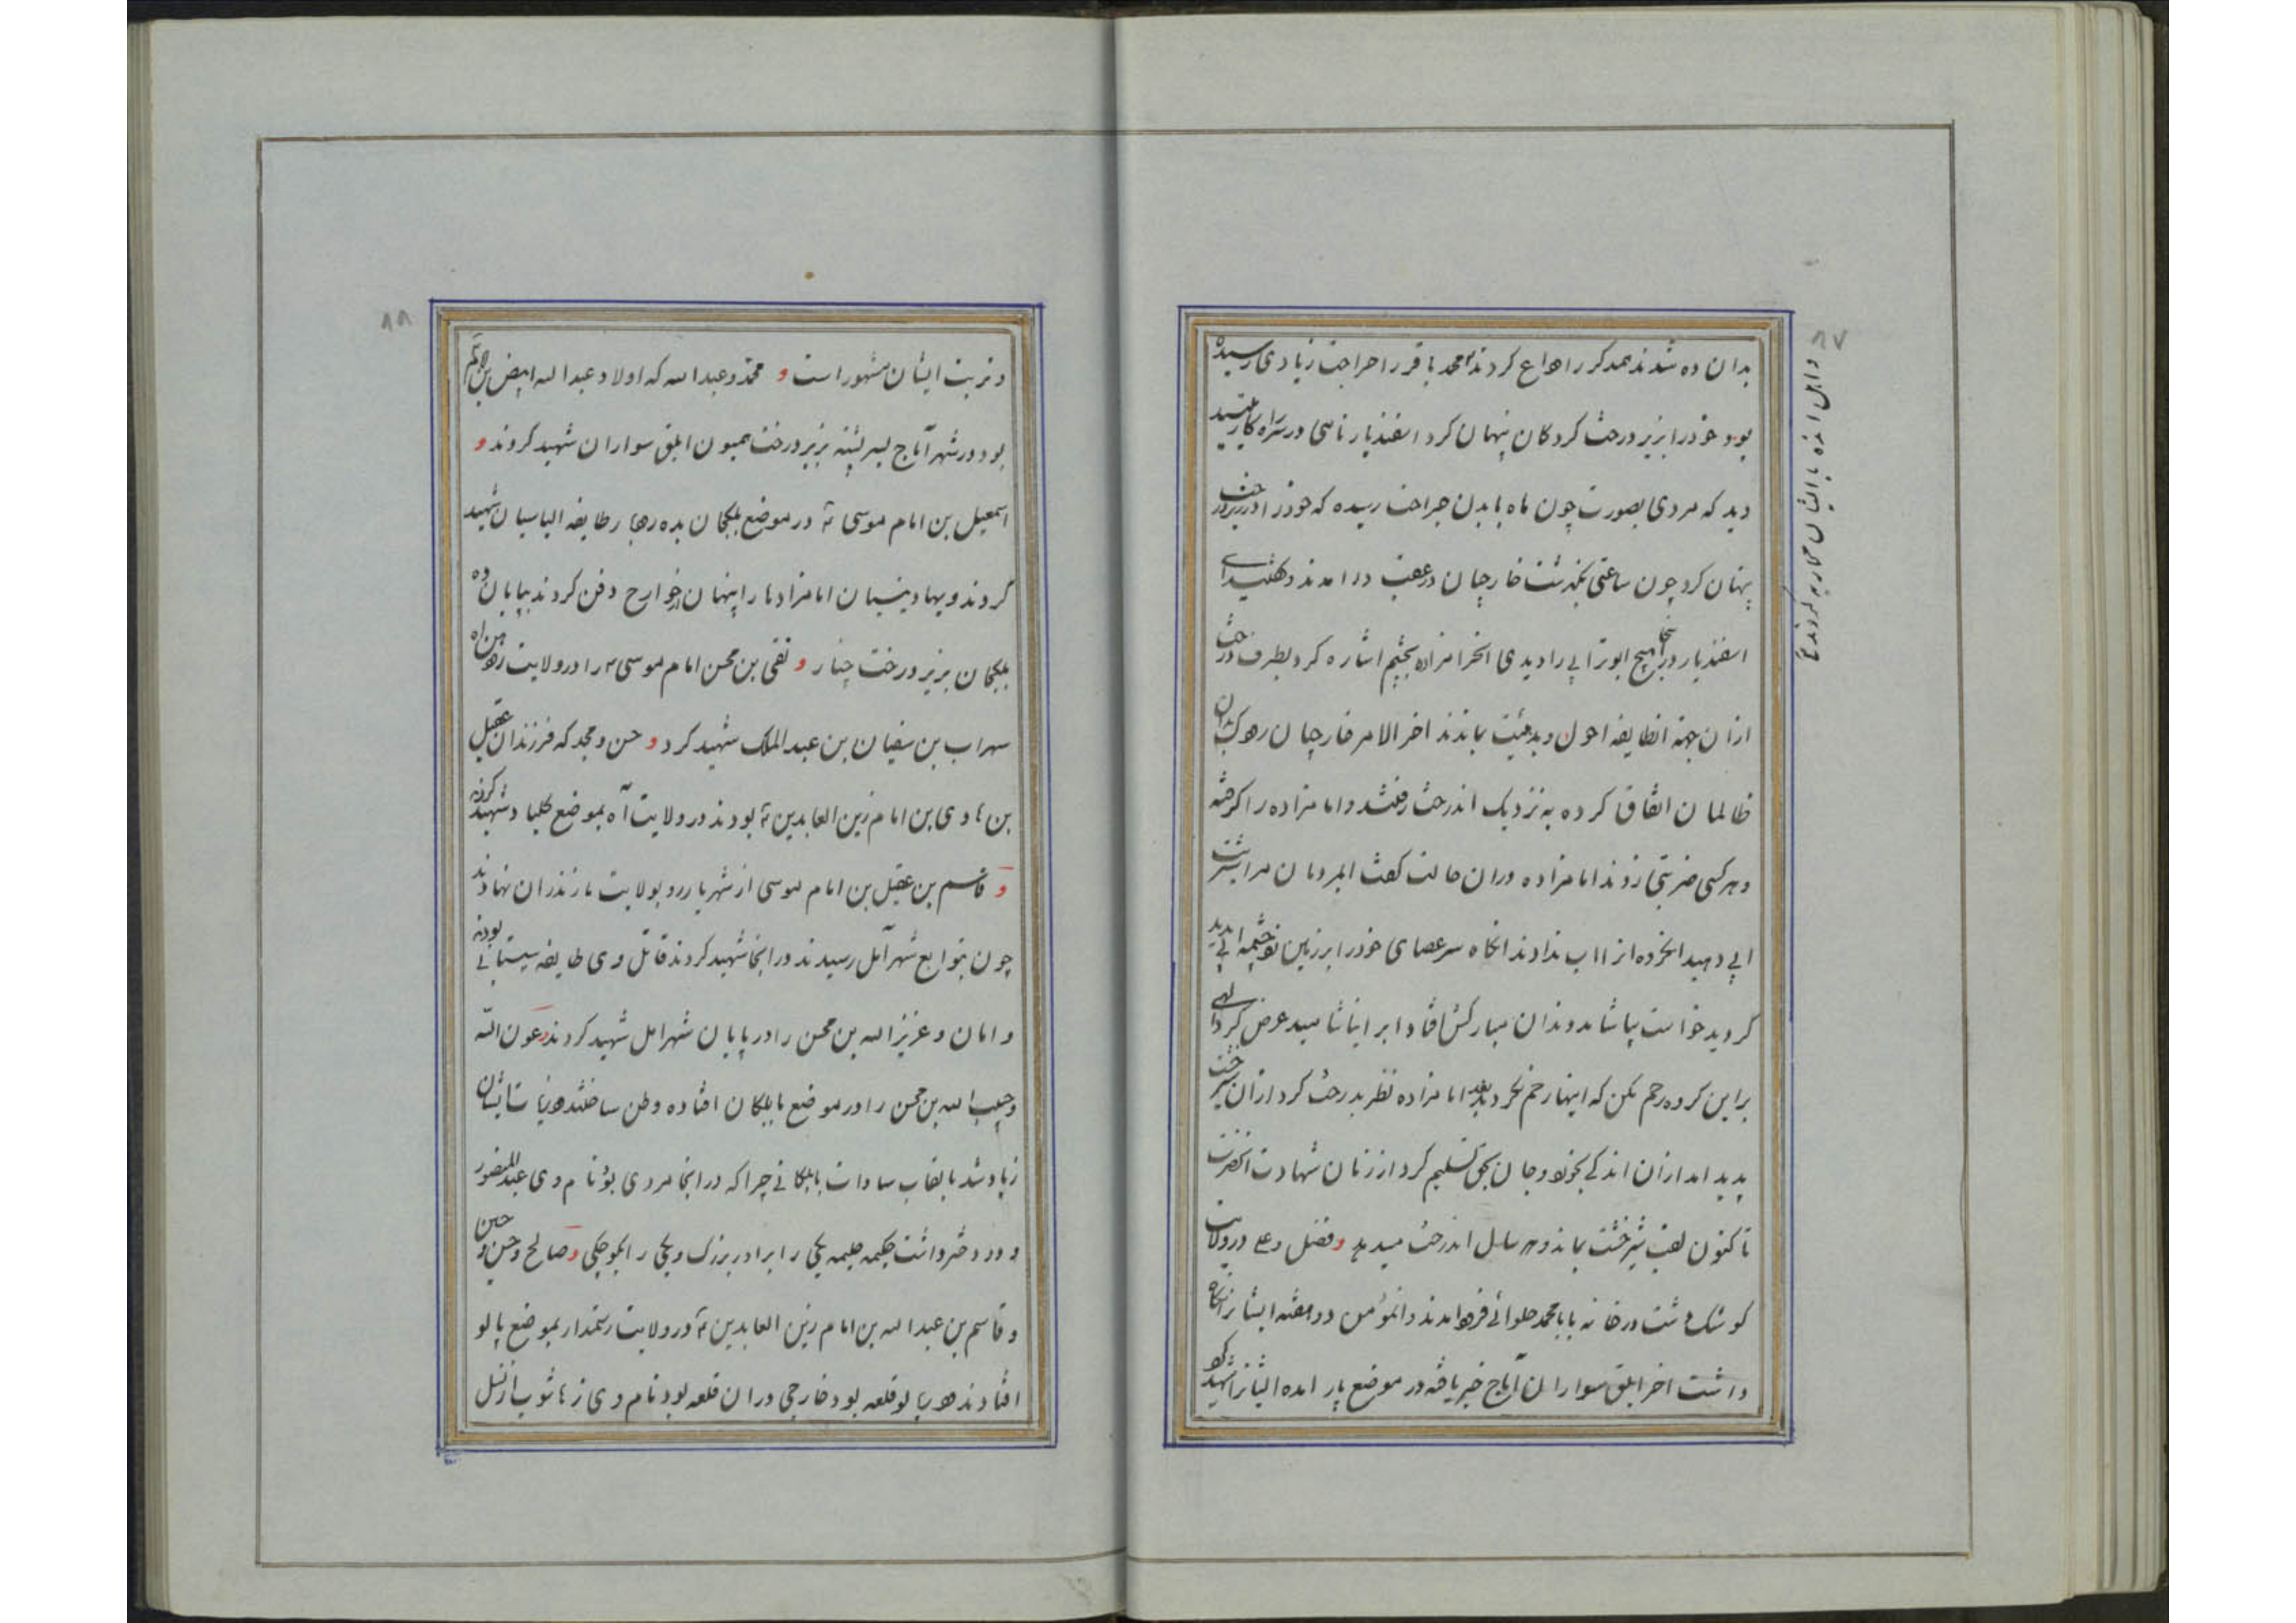 ۸۷
بدان ده شدند همدکر را وداع کردند محمد باقر را جراحت زیادی رسیده
بود و خود را بزیر درخت کردکان پنهان کرد اسفندیار نامی در سر راه
دید که مردی بصورت چون ماه با بدن جراحت رسیده که خود را در زیر درخت
پنهان کرد چون ساعتی بگذشت خارجیان در عقب در امدند و گفتند ای
اسفندیار در اینجا هیچ ابوترابی را دیدی انحرامزاده بچشم اشاره کرد بطرف درخت
ازان جهة انطایفه احول و بدهیئت بماندند اخر الامر خارجیان
ظالمان اتفاق کرده به نزدیک اندرخت رفتند و امامزاده را کرفته
و هر کسی ضربتی زدند امامزاده دران حالت کفت ایمردمان مرا شربت
ابی دهید انخرده ازا اب ندادند انکاه سر عصای خود را بر زمین چشمه ابی پدید
کردید خواست بیاشامد دندان مبارکش افتاد ابرا نیاشامید عرض کرد الهی
براین کروه رحم مکن که اینها رحم نکردند بعد امامزاده نظر بدرخت کرد ازان شیرخشت
پدید امد ازان اندکی بخورد و جان بحق تسلیم کرد از زمان شهادت انحضرت
تا کنون لقب شیرخشت بماند و هر سال اندرخت میدهد و فضل و علی در ولایت
کوشک دشت در خانه بابا محمد حلوائی فرود امدند و انمؤمن دو هفته ایشانرا نکاه
داشت اخر ابلق سواران آماج خبر یافته در موضع پار امده ایشانرا شهید کرد
و اهل انده با ایشان محاربه کردند
۸۸
و تربت ایشان مشهور است و محمد و عبدالله که اولاد عبدالله ابیض بن
بود در شهر آماج بسر پشته بزیر درخت همیون ابلق سواران شهید کردند و
اسمعیل بن امام موسی در موضع بلکجان بده رها ر طایفه الیاسیان شهید
کردند و بهادینسیان امامزاده را پنهان خوارج دفن کردند بپایان ده
بلکجان بزیر درخت چنار و تقی بن محسن امام موسی را در ولایت
سهراب بن سفیان بن عبدالملک شهید کرد و حسن و محمد که فرزندان عقیل
بن هادی بن امام زین العابدین بودند در ولایت آه بموضع کلیاد شهید کردند
و قاسم بن عقیل بن امام موسی از شهریار رو بولایت مازندران نهادند
چون بتوابع شهر آمل رسیدند در انجا شهید کردند قاتل وی طایفه سیستانی بودند
و امان و عزیزالله بن محسن را در پایان شهر امل شهید کردند و عون الله
و حبیب الله بن محسن را در موضع بابلکان افتاده وطن ساختند
زیاد شد بالقاب سادات بابلکانی چرا که در انجا مردی بود نام وی عبدالمنصور
و دو دختر داشت حکیمه حلیمه یکی را برادر بزرک و یکی را بکوچکی و صالح و حسن و حسین
و قاسم بن عبدالله بن امام زین العابدین در ولایت رستمدار بموضع پالو
افتادند در پالو قلعه بود خارجی دران قلعه بود نام وی زهاشوب از نسل